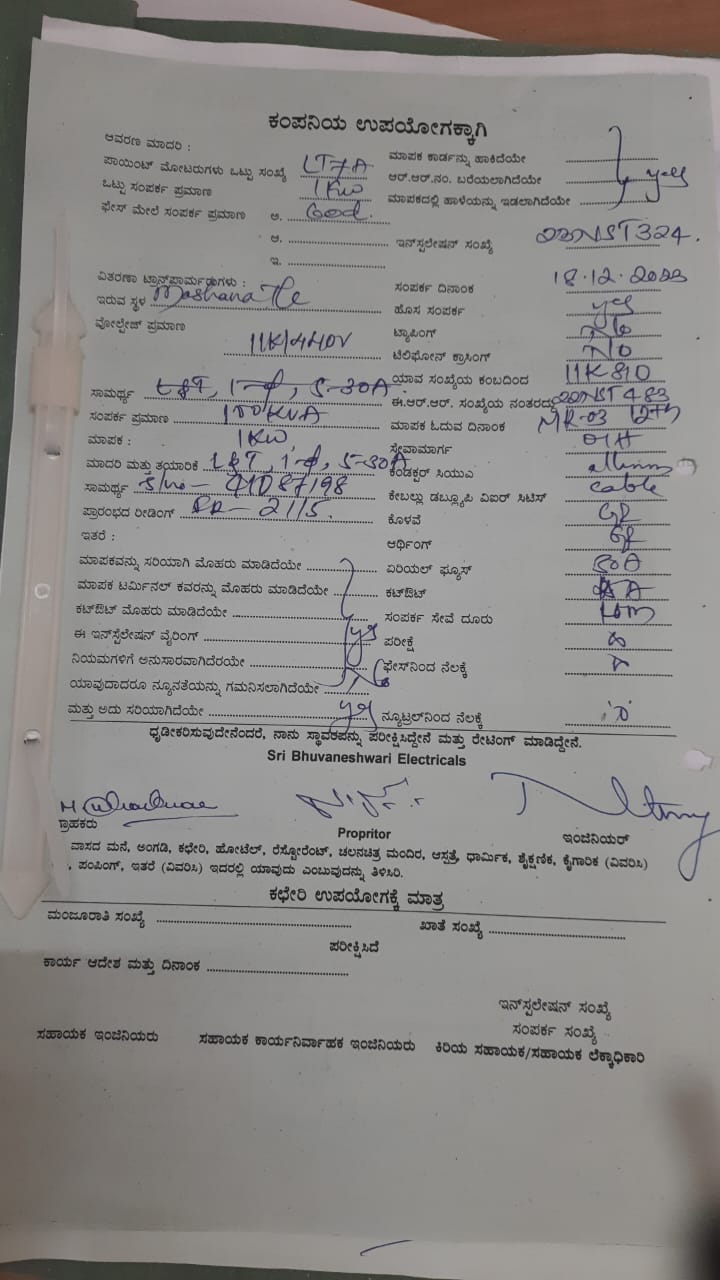 ಕಂಪನಿಯ ಉಪಯೋಗಕ್ಕಾಗಿ
ಆವರಣ ಮಾದರಿ :
ಮಾಪಕ ಕಾರ್ಡನ್ನು ಹಾಕಿದೆಯೇ
ಪಾಯಿಂಟ್ ಮೋಟರುಗಳು ಒಟ್ಟು ಸಂಖ್ಯೆ LT7A
ಆರ್.ಆರ್.ನಂ. ಬರೆಯಲಾಗಿದೆಯೇ yes
ಒಟ್ಟು ಸಂಪರ್ಕ ಪ್ರಮಾಣ 1KW
ಮಾಪಕದಲ್ಲಿ ಹಾಳೆಯನ್ನು ಇಡಲಾಗಿದೆಯೇ
ಫೇಸ್ ಮೇಲೆ ಸಂಪರ್ಕ ಪ್ರಮಾಣ ಅ.
ಆ. ಇನ್‌ಸ್ಟಲೇಷನ್ ಸಂಖ್ಯೆ
ಇ.
ವಿತರಣಾ ಟ್ರಾನ್ಸ್‌ಫಾರ್ಮರುಗಳು :
ಸಂಪರ್ಕ ದಿನಾಂಕ
ಇರುವ ಸ್ಥಳ
ಹೊಸ ಸಂಪರ್ಕ yes
ವೋಲ್ಟೇಜ್ ಪ್ರಮಾಣ 11K/440V
ಟ್ಯಾಪಿಂಗ್ No
ಟೆಲಿಫೋನ್ ಕ್ರಾಸಿಂಗ್ No
ಯಾವ ಸಂಖ್ಯೆಯ ಕಂಬದಿಂದ
ಸಾಮರ್ಥ್ಯ L&T, 1-ϕ, 5-30A
ಈ.ಆರ್.ಆರ್. ಸಂಖ್ಯೆಯ ನಂತರದ್ದು
ಸಂಪರ್ಕ ಪ್ರಮಾಣ 100KVA
ಮಾಪಕ ಓದುವ ದಿನಾಂಕ MR-03
ಮಾಪಕ : 1KW
ಸೇವಾಮಾರ್ಗ OH
ಮಾದರಿ ಮತ್ತು ತಯಾರಿಕೆ L&T, 1-ϕ, 5-30A
ಕಂಡಕ್ಟರ್ ಸಿಯುಎ
ಸಾಮರ್ಥ್ಯ S/no-
ಕೇಬಲ್ಲು ಡಬ್ಲ್ಯೂಪಿ ವಿಐರ್ ಸಿಟಿಸ್ cable
ಪ್ರಾರಂಭದ ರೀಡಿಂಗ್
ಕೊಳವೆ GI
ಇತರೆ :
ಆರ್ಥಿಂಗ್ GI
ಮಾಪಕವನ್ನು ಸರಿಯಾಗಿ ಮೊಹರು ಮಾಡಿದೆಯೇ
ಏರಿಯಲ್ ಫ್ಯೂಸ್ 30A
ಮಾಪಕ ಟರ್ಮಿನಲ್ ಕವರನ್ನು ಮೊಹರು ಮಾಡಿದೆಯೇ
ಕಟ್‌ಔಟ್
ಕಟ್‌ಔಟ್ ಮೊಹರು ಮಾಡಿದೆಯೇ
ಸಂಪರ್ಕ ಸೇವೆ ದೂರು
ಈ ಇನ್‌ಸ್ಟಲೇಷನ್ ವೈರಿಂಗ್ yes
ಪರೀಕ್ಷೆ
ನಿಯಮಗಳಿಗೆ ಅನುಸಾರವಾಗಿದೆರಯೇ
ಫೇಸ್‌ನಿಂದ ನೆಲಕ್ಕೆ
ಯಾವುದಾದರೂ ನ್ಯೂನತೆಯನ್ನು ಗಮನಿಸಲಾಗಿದೆಯೇ No
ಮತ್ತು ಅದು ಸರಿಯಾಗಿದೆಯೇ yes
ನ್ಯೂಟ್ರಲ್‌ನಿಂದ ನೆಲಕ್ಕೆ
ಧೃಡೀಕರಿಸುವುದೇನೆಂದರೆ, ನಾನು ಸ್ಥಾವರವನ್ನು ಪರೀಕ್ಷಿಸಿದ್ದೇನೆ ಮತ್ತು ರೇಟಿಂಗ್ ಮಾಡಿದ್ದೇನೆ.
Sri Bhuvaneshwari Electricals
ಗ್ರಾಹಕರು Propritor ಇಂಜಿನಿಯರ್
ವಾಸದ ಮನೆ, ಅಂಗಡಿ, ಕಛೇರಿ, ಹೋಟೆಲ್, ರೆಸ್ಟೋರೆಂಟ್, ಚಲನಚಿತ್ರ ಮಂದಿರ, ಆಸ್ಪತ್ರೆ, ಧಾರ್ಮಿಕ, ಶೈಕ್ಷಣಿಕ, ಕೈಗಾರಿಕ (ವಿವರಿಸಿ)
, ಪಂಪಿಂಗ್, ಇತರೆ (ವಿವರಿಸಿ) ಇದರಲ್ಲಿ ಯಾವುದು ಎಂಬುವುದನ್ನು ತಿಳಿಸಿರಿ.
ಕಛೇರಿ ಉಪಯೋಗಕ್ಕೆ ಮಾತ್ರ
ಮಂಜೂರಾತಿ ಸಂಖ್ಯೆ ಖಾತೆ ಸಂಖ್ಯೆ
ಪರೀಕ್ಷಿಸಿದೆ
ಕಾರ್ಯ ಆದೇಶ ಮತ್ತು ದಿನಾಂಕ
ಇನ್‌ಸ್ಪಲೇಷನ್ ಸಂಖ್ಯೆ
ಸಂಪರ್ಕ ಸಂಖ್ಯೆ
ಸಹಾಯಕ ಇಂಜಿನಿಯರು ಸಹಾಯಕ ಕಾರ್ಯನಿರ್ವಾಹಕ ಇಂಜಿನಿಯರು ಕಿರಿಯ ಸಹಾಯಕ/ಸಹಾಯಕ ಲೆಕ್ಕಾಧಿಕಾರಿ